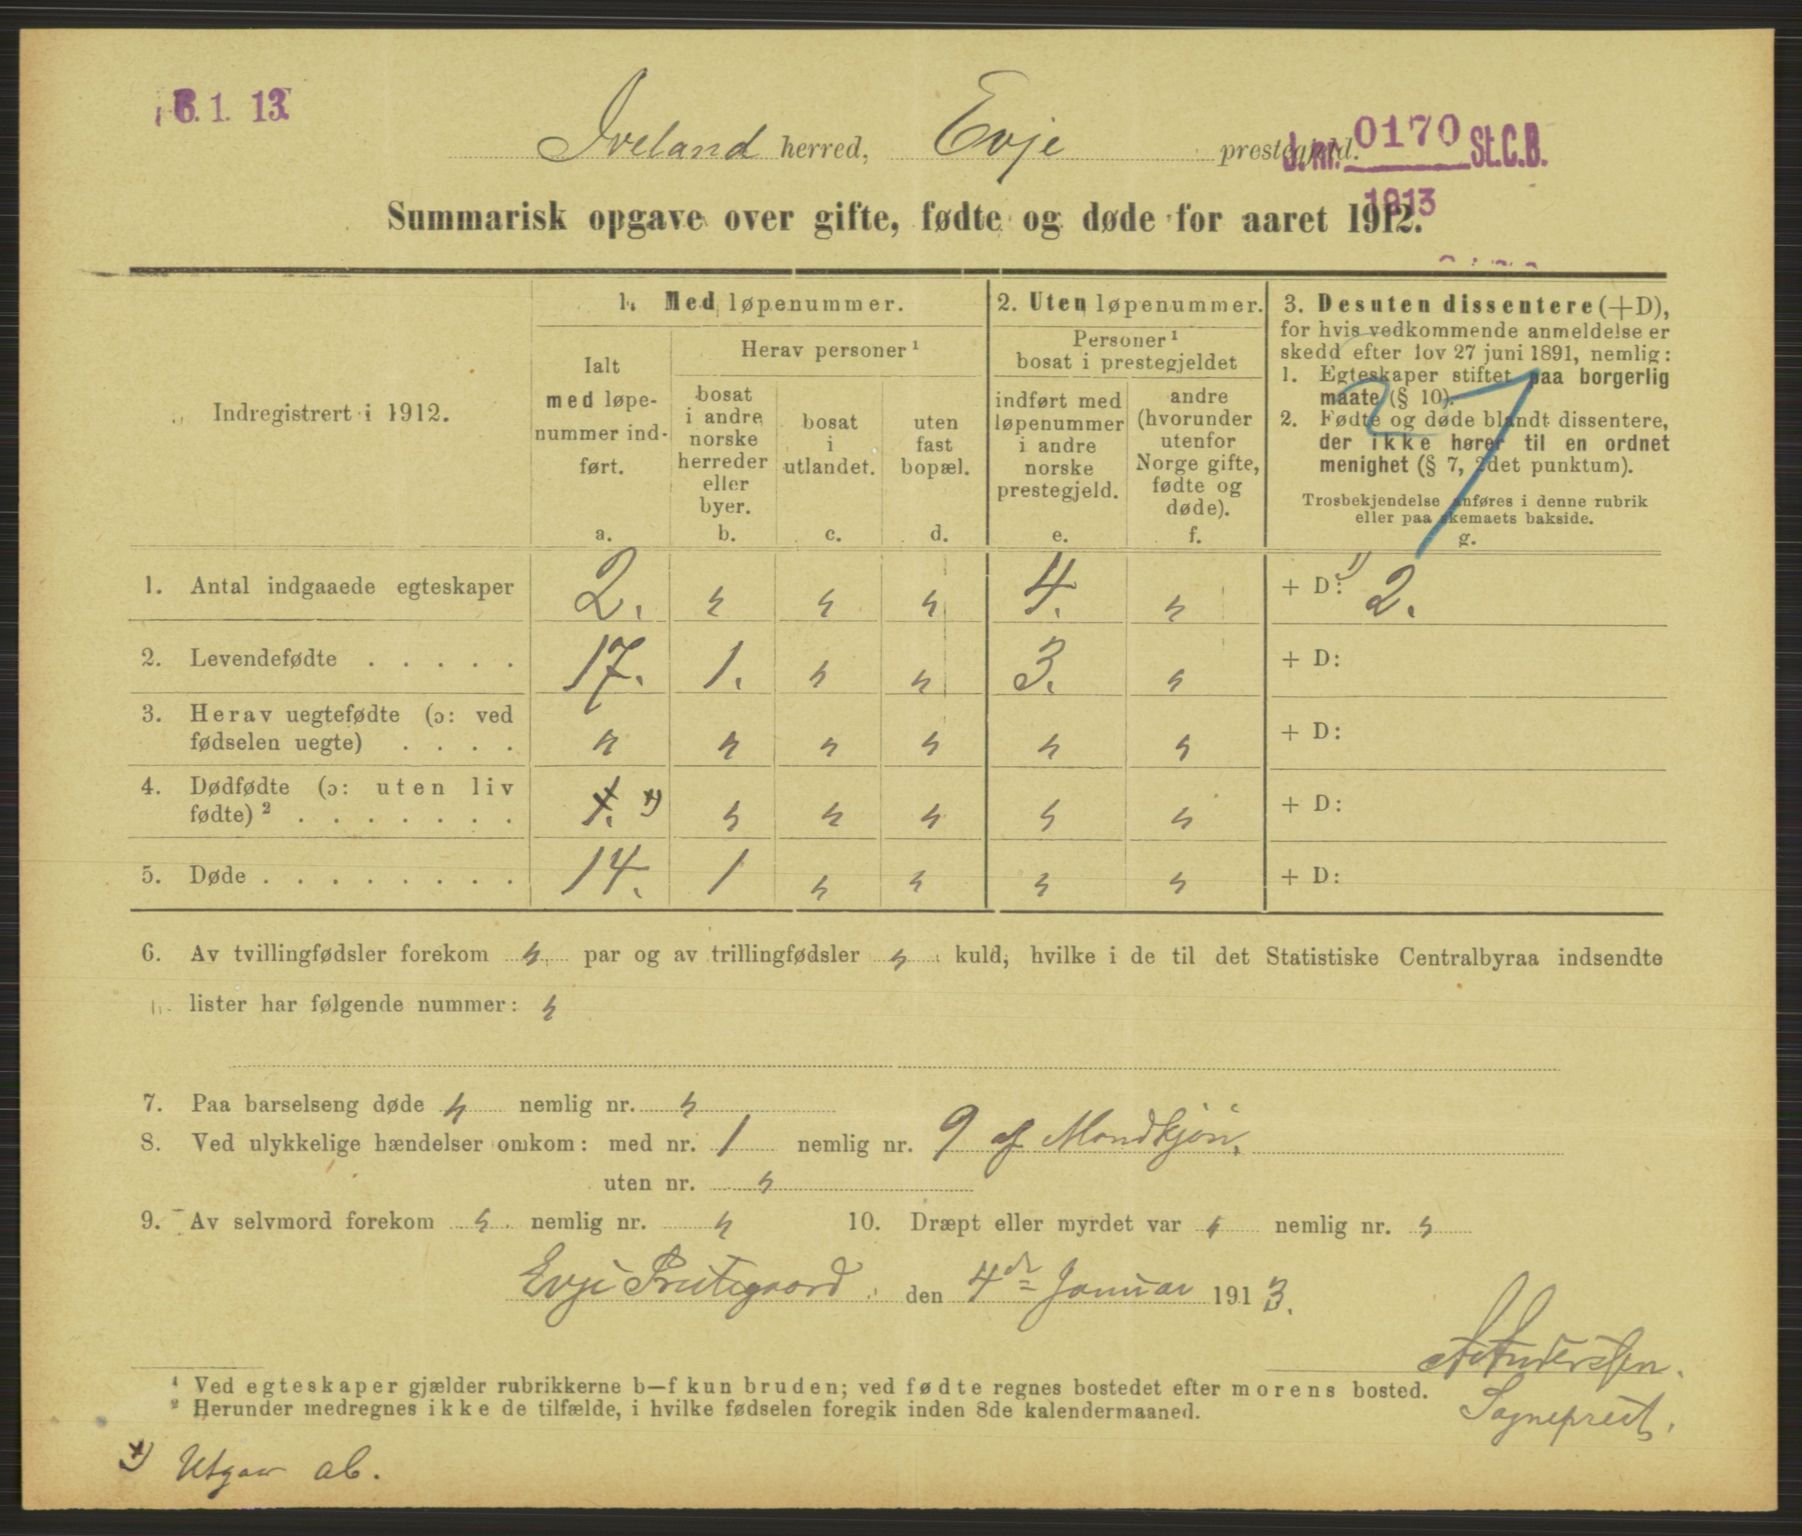 6. 1. 13
Iveland herred, Evje prestegjeld.
J. nr. 0170 St.C.B.
1913
Summarisk opgave over gifte, fødte og døde for aaret 1912.
Indregistrert i 1912.
1. Med løpenummer.
Ialt
med løpe-
nummer ind-
ført.
a.
Herav personer ¹
bosat
i andre
norske
herreder
eller
byer.
b.
bosat
i
utlandet.
c.
uten
fast
bopæl.
d.
2. Uten løpenummer.
Personer ¹
bosat i prestegjeldet
indført med
løpenummer
i andre
norske
prestegjeld.
e.
andre
(hvorunder
utenfor
Norge gifte,
fødte og
døde).
f.
3. Desuten dissentere (+D),
for hvis vedkommende anmeldelse er
skedd efter lov 27 juni 1891, nemlig:
1. Egteskaper stiftet paa borgerlig
maate (§ 10).
2. Fødte og døde blandt dissentere,
der ikke hører til en ordnet
menighet (§ 7, 2det punktum).
Trosbekjendelse anføres i denne rubrik
eller paa skemaets bakside.
g.
1. Antal indgaaede egteskaper 2. " " " 4. " + D: 1) 2.
2. Levendefødte . . . . . 17. 1. " " 3. " + D:
3. Herav uegtefødte (ɔ: ved
fødselen uegte) . . . . " " " " " " + D:
4. Dødfødte (ɔ: uten liv
fødte) ² . . . . . . . 1. x) " " " " " + D:
5. Døde . . . . . . . . 14. 1 " " " " + D:
6. Av tvillingfødsler forekom " par og av trillingfødsler " kuld, hvilke i de til det Statistiske Centralbyraa indsendte
lister har følgende nummer: "
7. Paa barselseng døde " nemlig nr. "
8. Ved ulykkelige hændelser omkom: med nr. 1 nemlig nr. 9 af
uten nr. "
9. Av selvmord forekom " nemlig nr. " 10. Dræpt eller myrdet var " nemlig nr. "
Evje Prestegaard den 4de Januar 1913.
Andersen.
Sogneprest.
¹ Ved egteskaper gjælder rubrikkerne b—f kun bruden; ved fødte regnes bostedet efter morens bosted.
² Herunder medregnes ikke de tilfælde, i hvilke fødselen foregik inden 8de kalendermaaned.
x) Utgaar ab.